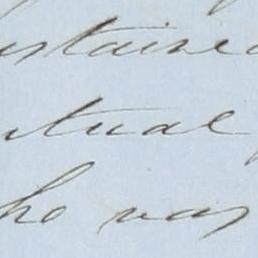 ustained
utual
ho was